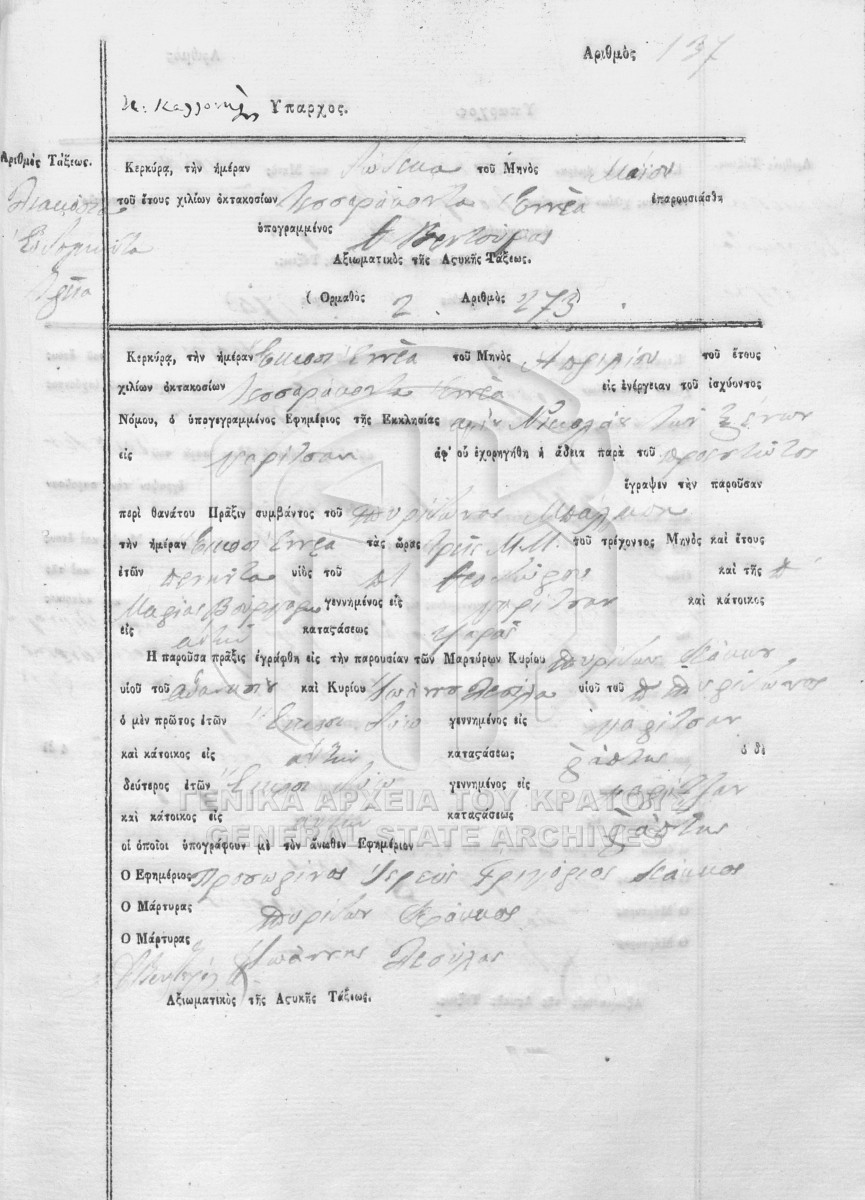 Αριθμὸς 137
Υπαρχος.
Αριθμὸς Τάξεως.
Κερκύρα, τὴν ἡμέραν Δώδεκα τοῦ Μηνὸς Μαΐου
τοῦ ἔτους χιλίων ὀκτακοσίων τεσσαράκοντα ἐννέα ἐπαρουσιάσθη
ὑπογραμμένος
Διακόσια
Ἑβδομήντα
Τρία
Αξιωματικὸς τῆς Αςυκῆς Τάξεως.
( Ορμαθὸς 2 Αριθμὸς 273 )
Κερκύρᾳ, τὴν ἡμέραν εἴκοσι ἐννέα τοῦ Μηνὸς Ἀπριλίου τοῦ ἔτους
χιλίων ὀκτακοσίων τεσσαράκοντα ἐννέα εἰς ἐνέργειαν τοῦ ἰσχύοντος
Νόμου, ὁ ὑπογεγραμμένος Εφημέριος τῆς Εκκλησίας τῶν ξένων
εἰς γαρίτσαν ἀφ' οὗ ἐχορηγήθη ἡ ἄδεια παρὰ τοῦ
ἔγραψεν τὴν παροῦσαν
περὶ θανάτου Πρᾶξιν συμβάντος τοῦ Σπυρίδωνος
τὴν ἡμέραν εἴκοσι ἐννέα τὰς ὥρας τρεῖς Μ.Μ. τοῦ τρέχοντος Μηνὸς καὶ ἔτους
ἐτῶν πενήντα υἱὸς τοῦ καὶ τῆς
Μαρίας γεννημένος εἰς γαρίτσαν καὶ κάτοικος
εἰς αὐτὴν καταςάσεως
Η παροῦσα πρᾶξις ἐγράφθη εἰς τὴν παρουσίαν τῶν Μαρτύρων Κυρίου Σπυρίδων
υἱοῦ τοῦ καὶ Κυρίου Ἰωάννη υἱοῦ τοῦ Σπυρίδωνος
ὁ μὲν πρῶτος ἐτῶν εἴκοσι δύο γεννημένος εἰς γαρίτσαν
καὶ κάτοικος εἰς αὐτὴν καταςάσεως ῥάπτης ὁ δὲ
δεύτερος ἐτῶν εἴκοσι δύο γεννημένος εἰς γαρίτζαν
καὶ κάτοικος εἰς αὐτὴν καταςάσεως ῥάπτης
οἱ ὁποῖοι ὑπογράφουν μὲ τὸν ἄνωθεν Εφημέριον
Ο Εφημέριος Προσωρινὸς Ἱερεὺς Γρηγόριος
Ο Μάρτυρας Σπυρίδων
Ο Μάρτυρας Ἰωάννης
Αξιωματικὸς τῆς Αςυκῆς Τάξεως.
ΓΕΝΙΚΑ ΑΡΧΕΙΑ ΤΟΥ ΚΡΑΤΟΥΣ
GENERAL STATE ARCHIVES